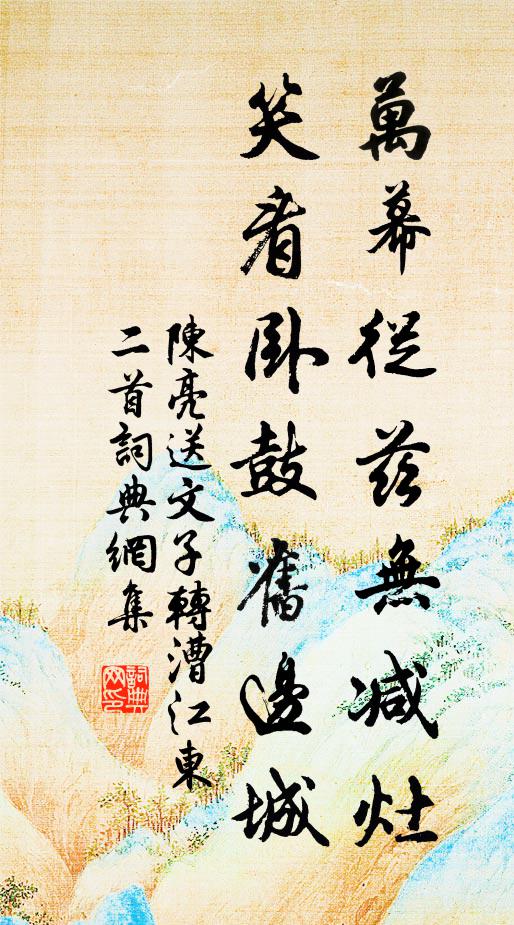 萬幕從茲無減灶
笑看臥鼓舊邊城
陳亮送文子轉漕江東
二首詞典網集
詞典网印